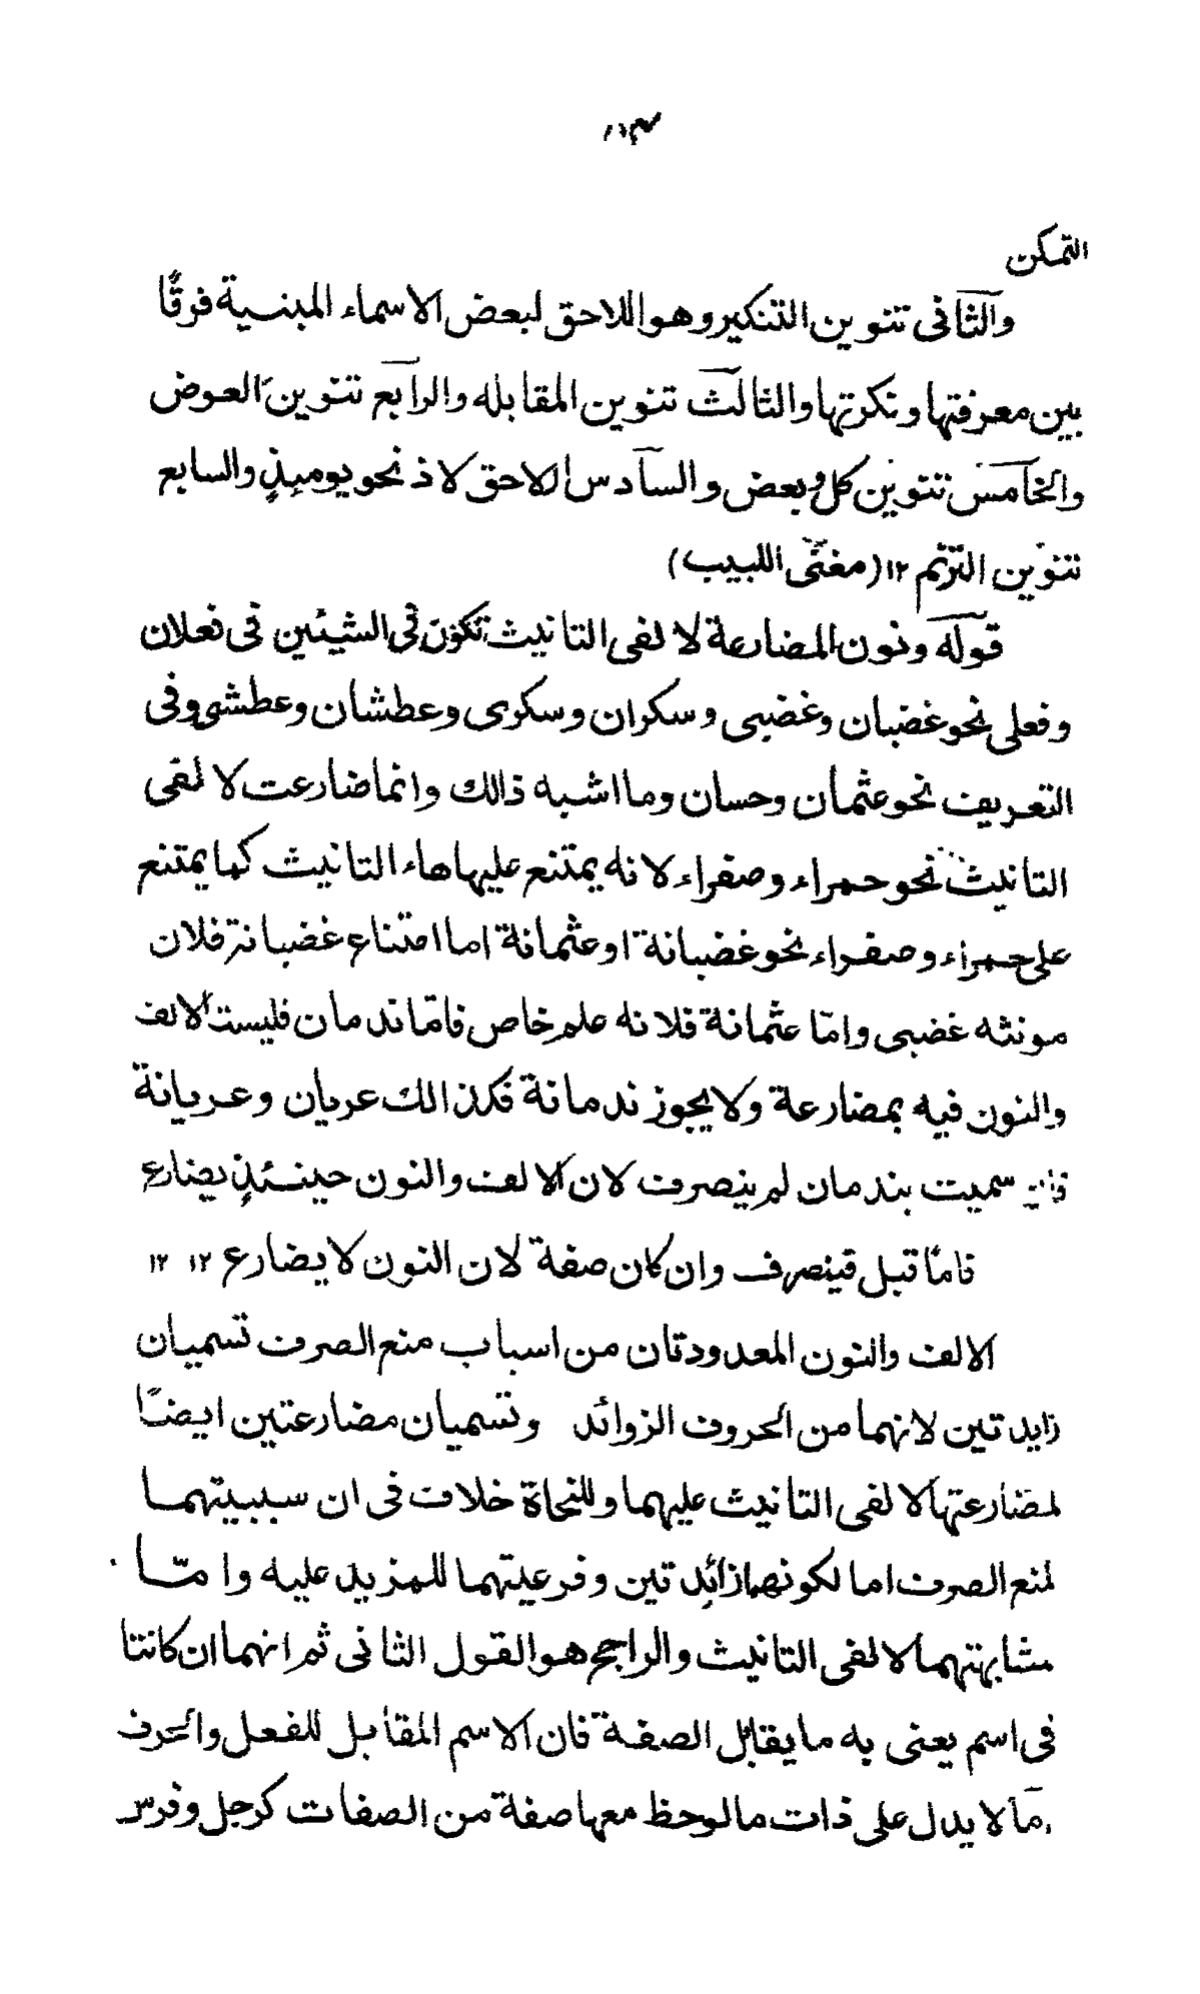 التمكن
والثانى تنوين التنكير وهو اللاحق لبعض الاسماء المبنية فرقًا
بين معرفتها ونكرتها والثالث تنوين المقابله والرابع تنوين العوض
والخامس تنوين كل وبعض والسادس اللاحق لاذ نحو يومئذٍ والسابع
تنوين الترنم ١٢ (مغنى اللبيب)
قوله ونون المضارعة لالفى التانيث تكون فى الشيئين فى فعلان
وفعلى نحو غضبان وغضبى وسكران وسكرى وعطشان وعطشى وفى
التعريف نحو عثمان وحسان وما اشبه ذالك وانما ضارعت لالفى
التانيث نحو حمراء وصفراء لانه يمتنع عليها هاء التانيث كما يمتنع
على حمراء وصفراء نحو غضبانة او عثمانة اما امتناع غضبانة فلان
مونثه غضبى وامّا عثمانة فلانه علم خاص فامّا ندمان فليست الالف
والنون فيه بمضارعة ولا يجوز ندمانة فكذالك عريان وعريانة
سميت بندمان لم ينصرف لان الالف والنون حينئذٍ يضارع
فامّا قبل فينصرف وان كان صفة لان النون لا يضارع ١٢ ١٢
الالف والنون المعدودتان من اسباب منع الصرف تسميان
زايدتين لانهما من الحروف الزوائد وتسميان مضارعتين ايضًا
لمضارعتها لالفى التانيث عليهما وللنحاة خلاف فى ان سببيتهما
لمنع الصرف اما لكونهما زائدتين وفرعيتهما للمزيد عليه وامّا
مشابهتهما لالفى التانيث والراجح هو القول الثانى ثم انهما ان كانتا
فى اسم يعنى به ما يقابل الصفة فان الاسم المقابل للفعل والحرف
ما لا يدل على ذات ما لوحظ معها صفة من الصفات كرجل وفرس